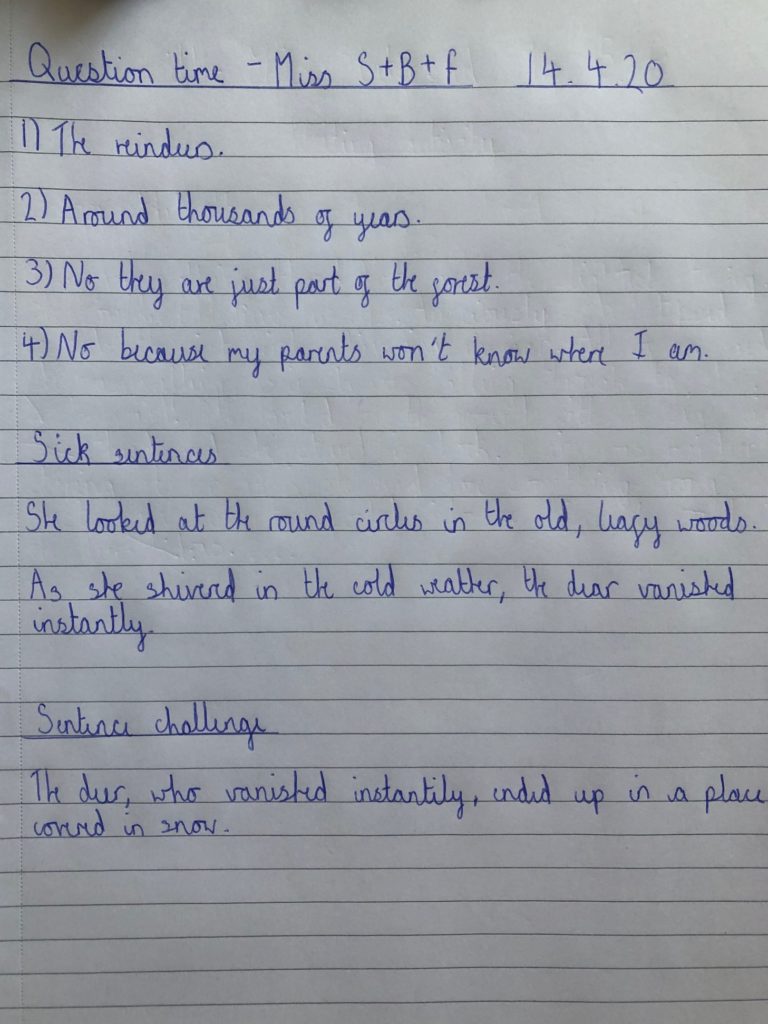 Question time - Miss S+B+f 14.4.20
1) The reindeers.
2) Around thousands of years.
3) No they are just part of the forest.
4) No because my parents won't know where I am.
Sick sentences
She looked at the round circles in the old, leafy woods.
As she shivered in the cold weather, the dear vanished
instantly.
Sentence challenge
The deer, who vanished instantily, ended up in a place
covered in snow.